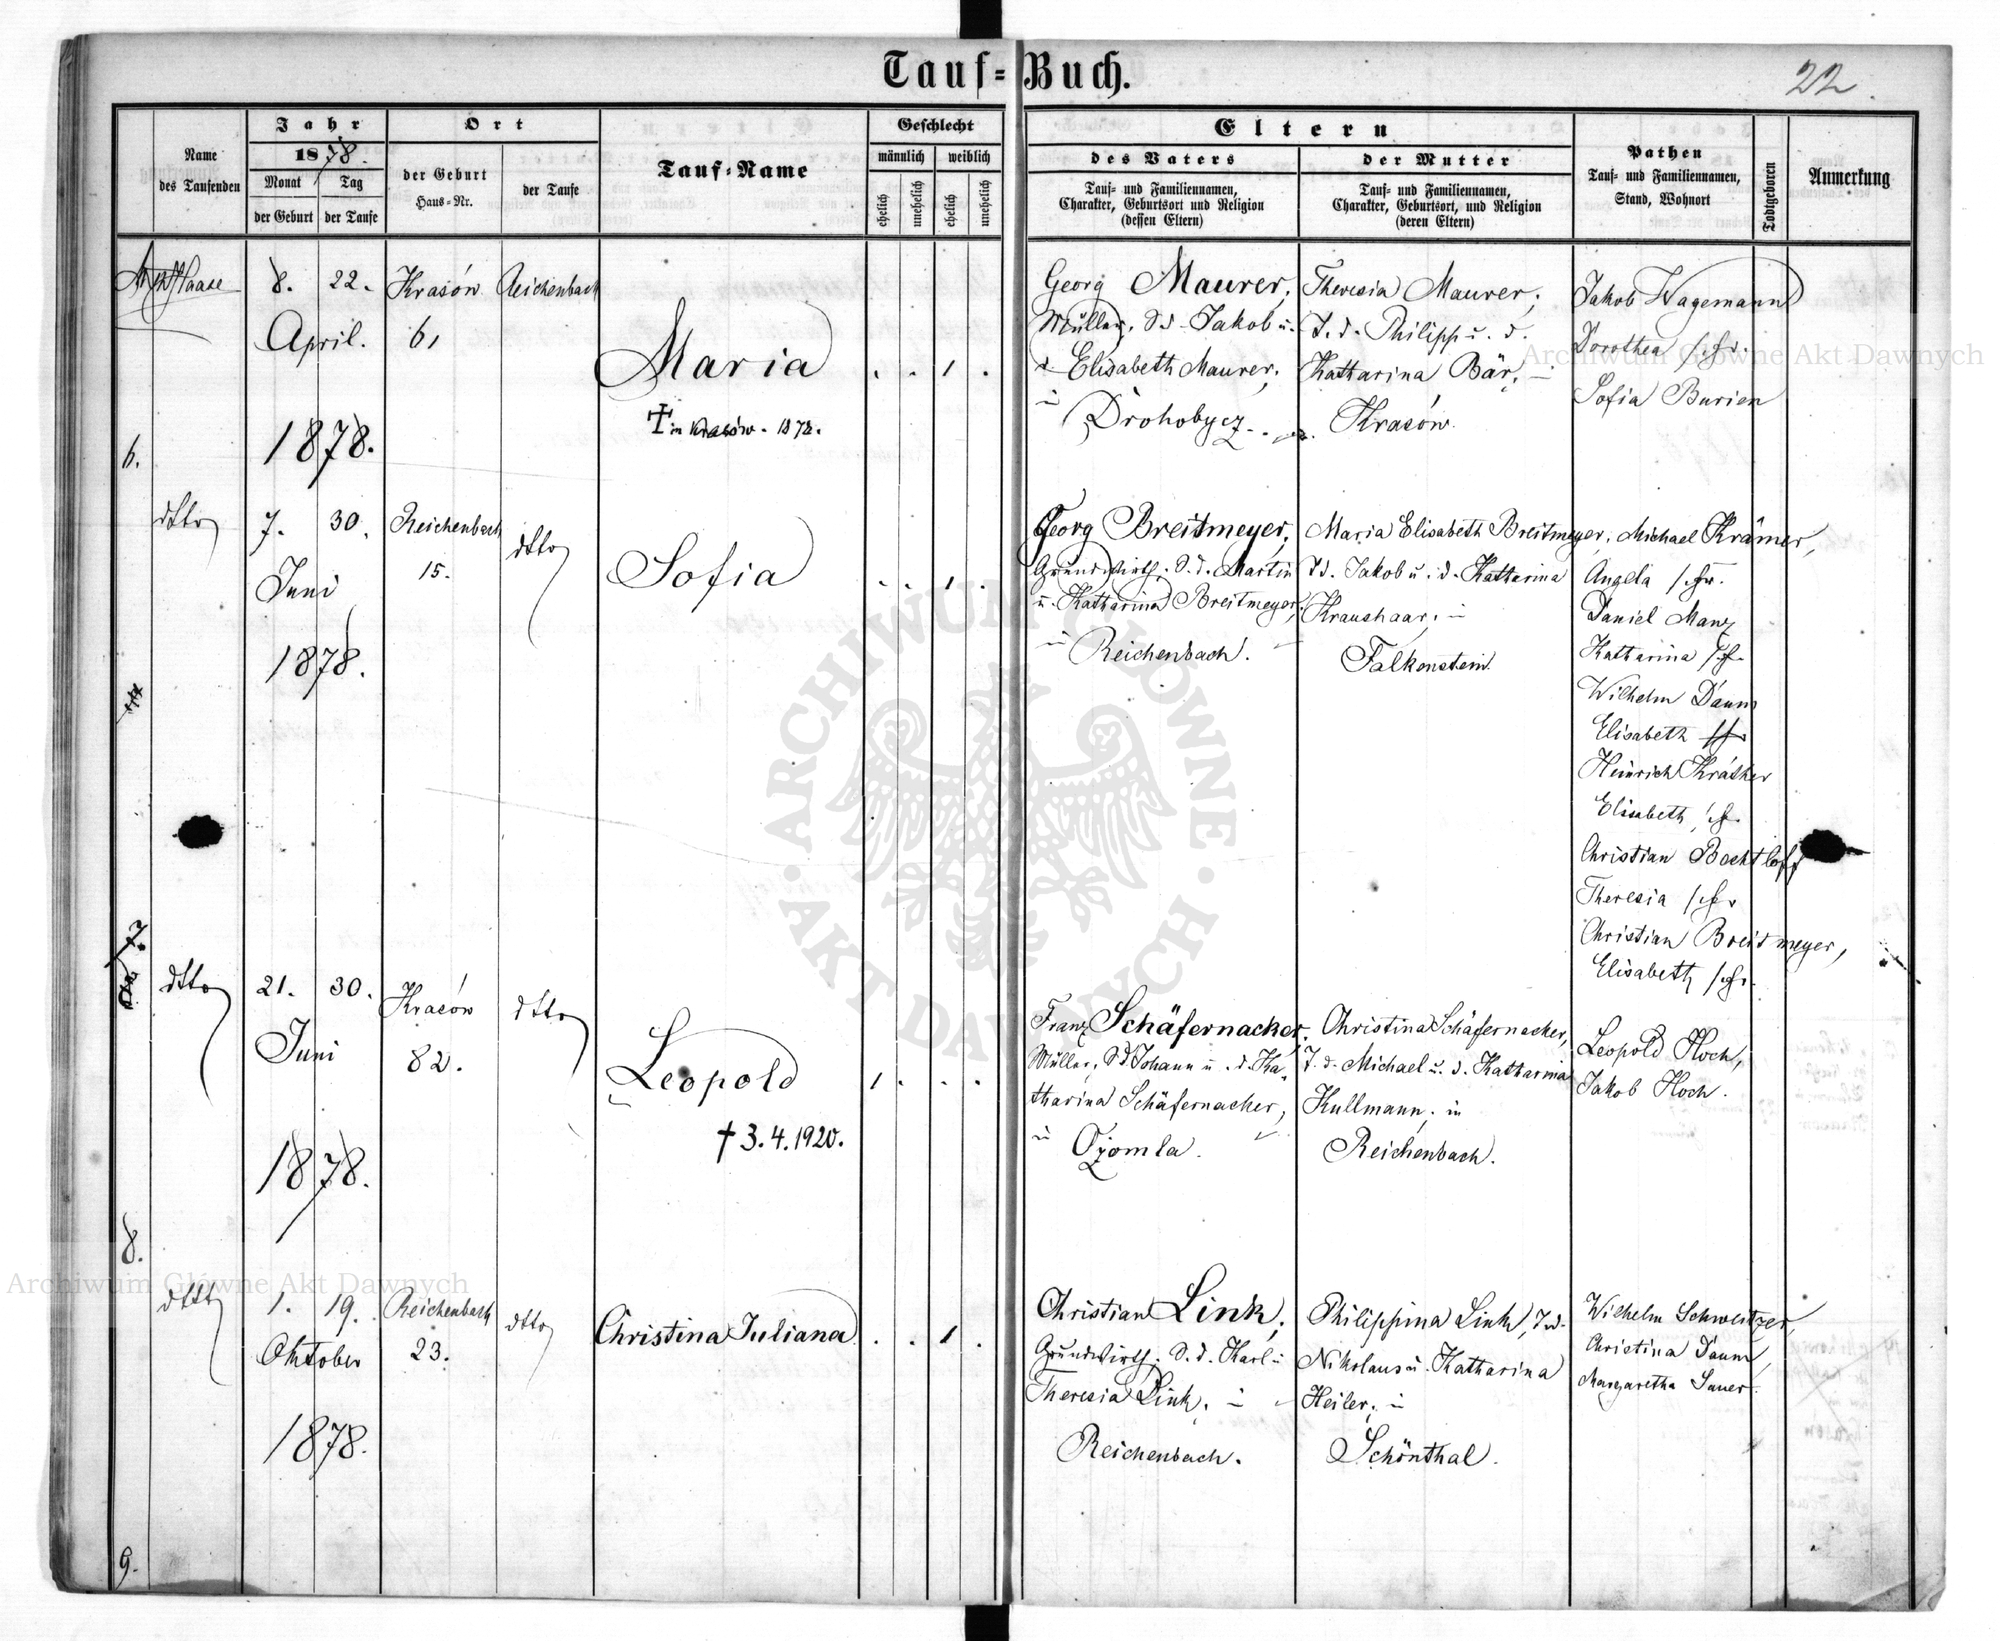 Tauf-Buch.
22
Name
des Taufenden
Jahr
1878.
Monat
der Geburt
Tag
der Taufe
Ort
der Geburt
Haus-Nr.
der Taufe
Tauf-Name
Geschlecht
männlich
weiblich
ehelich
unehelich
ehelich
unehelich
Eltern
des Vaters
Tauf- und Familiennamen,
Charakter, Geburtsort und Religion
(dessen Eltern)
der Mutter
Tauf- und Familiennamen,
Charakter, Geburtsort, und Religion
(deren Eltern)
Pathen
Tauf- und Familiennamen,
Stand, Wohnort
Todtgeboren
Anmerkung
6.
Haase
8. 22.
April.
1878.
Krasów
61
Reichenbach
Maria
† in Krasów. 1878.
. . 1 .
Georg Maurer,
Müller, S. d. Jakob u.
d. Elisabeth Maurer,
in
Drohobycz
Theresia Maurer,
T. d. Philipp u. d.
Katharina Bär, in
Krasów.
Jakob Wagemann
Dorothea
Sofia Burien
dtto
7. 30.
Juni
1878.
Reichenbach
15.
dtto
Sofia
. . 1 .
Georg Breitmeyer,
Grundwirth, S. d. Martin
u. Katharina Breitmeyer,
in Reichenbach.
Maria Elisabeth Breitmeyer,
T. d. Jakob u. d. Katharina
Kraushaar, in
Falkenstein
Michael Krämer,
Angela
Daniel Manz
Katharina
Wilhelm Daum
Elisabeth
Heinrich
Elisabeth
Christian Bechtloff
Theresia
Christian Breitmeyer,
Elisabeth
7.
dtto
21. 30.
Juni
1878.
Krasów
82.
dtto
Leopold
† 3.4.1920.
1 . . .
Franz Schäfernacker,
Müller, S. d. Johann u. d. Ka-
tharina Schäfernacker,
in
Ożomla.
Christina Schäfernacker,
T. d. Michael u. d. Katharina
Kullmann, in
Reichenbach.
Leopold Hoch,
Jakob Hoch.
8.
dtto
1. 19.
Oktober
1878.
Reichenbach
23.
dtto
Christina Juliana
. . 1 .
Christian Link,
Grundwirth, S. d. Karl u.
Theresia Link, in
Reichenbach.
Philippina Link, T. d.
Nikolaus u. Katharina
Heiler, in
Schönthal.
Wilhelm Schweitzer,
Christina Daum,
Margaretha Sauer.
9.
Archiwum Główne Akt Dawnych
ARCHIWUM GŁÓWNE · AKT DAWNYCH ·
Archiwum Główne Akt Dawnych